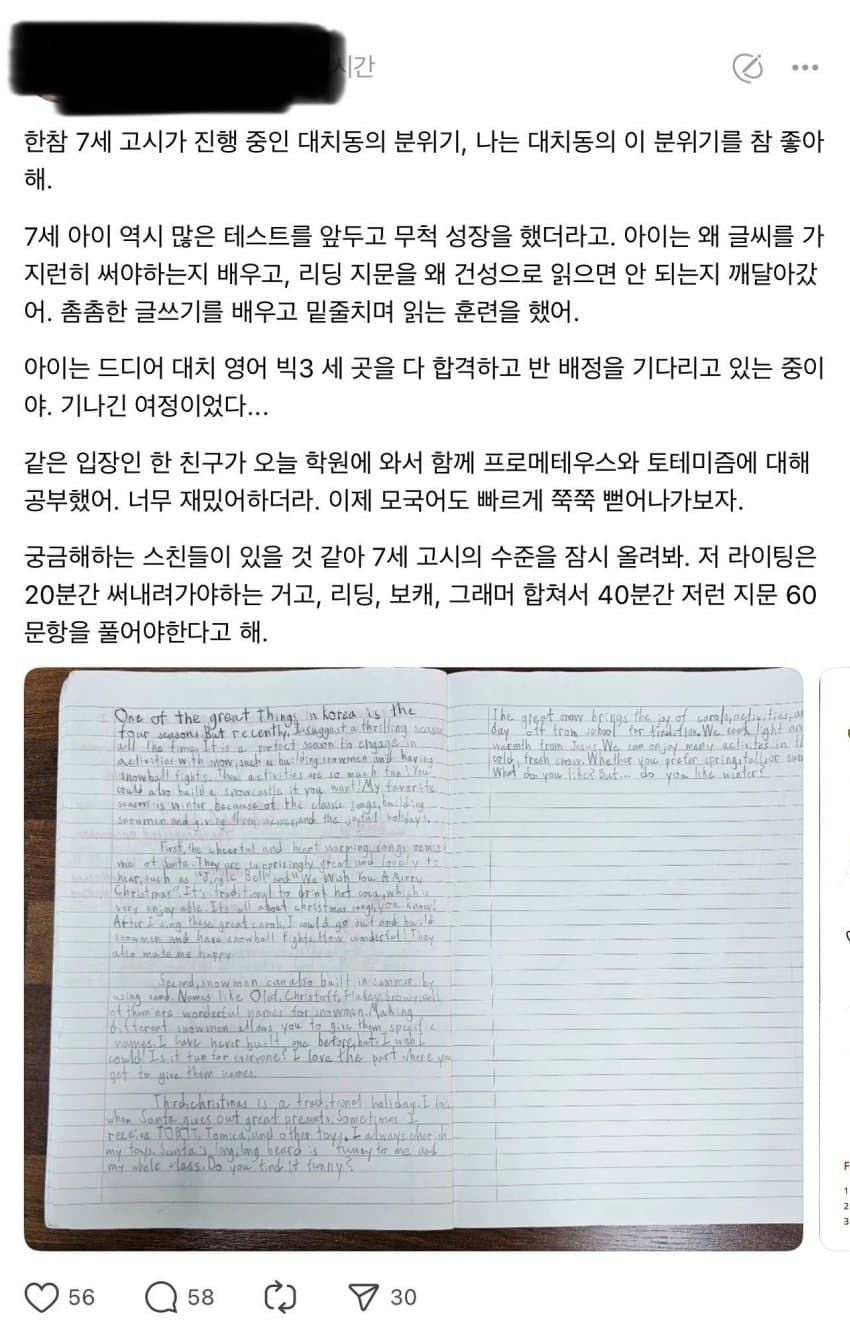 시간
한참 7세 고시가 진행 중인 대치동의 분위기, 나는 대치동의 이 분위기를 참 좋아
해.
7세 아이 역시 많은 테스트를 앞두고 무척 성장을 했더라고. 아이는 왜 글씨를 가
지런히 써야하는지 배우고, 리딩 지문을 왜 건성으로 읽으면 안 되는지 깨달아갔
어. 촘촘한 글쓰기를 배우고 밑줄치며 읽는 훈련을 했어.
아이는 드디어 대치 영어 빅3 세 곳을 다 합격하고 반 배정을 기다리고 있는 중이
야. 기나긴 여정이었다...
같은 입장인 한 친구가 오늘 학원에 와서 함께 프로메테우스와 토테미즘에 대해
공부했어. 너무 재밌어하더라. 이제 모국어도 빠르게 쭉쭉 뻗어나가보자.
궁금해하는 스친들이 있을 것 같아 7세 고시의 수준을 잠시 올려봐. 저 라이팅은
20분간 써내려가야하는 거고, 리딩, 보캐, 그래머 합쳐서 40분간 저런 지문 60
문항을 풀어야한다고 해.
One of the great things in korea is the
four seasons. But recently, I suggest a thrilling season
all the time. It is a perfect season to engage in
activities with snow, such as building snowmen and having
snowball fights. These activities are so much fun! You
could also build a snowcastle if you want! My favorite
season is winter because of the classic songs, building
snowmen and giving them names, and the joyful holidays.
First, the cheerful and heart warming songs remind
me of Santa. They are surprisingly great and lovely to
hear, such as "Jingle Bell" and "We Wish You A Merry
Christmas". It's traditional to drink hot coco, which is
very enjoy able. It's all about christmas songs, you know!
After I sing these great carols, I could go out and build
snowmen and have snowball fights. How wonderful! They
also make me happy.
Second, snowmen can also built in summer by
using sand. Names like Olaf, Christoff, Flakey, Snowy, all
of them are wonderful names for snowmen. Making
different snowmen allows you to give them specific
names. I have never built one before, but I wish I
could! Is it fun for everyone? I love the part where you
get to give them names.
Third, christmas is a traditional holiday. I love
when Santa gives out great presents. Sometimes I
receive TOBOT, Tomica, and other toys. I always cherish
my toys. Santa's long, long beard is funny to me and
my whole class. Do you find it funny?
The great snow brings the joy of carols, activities, and
day off from school for tradition. We seek light and
warmth from Jesus. We can enjoy many activites in the
cold, fresh snow. Whether you prefer spring, fall, or sum
What do you like? But... do you like winter?
F
1
2
3
56
58
30